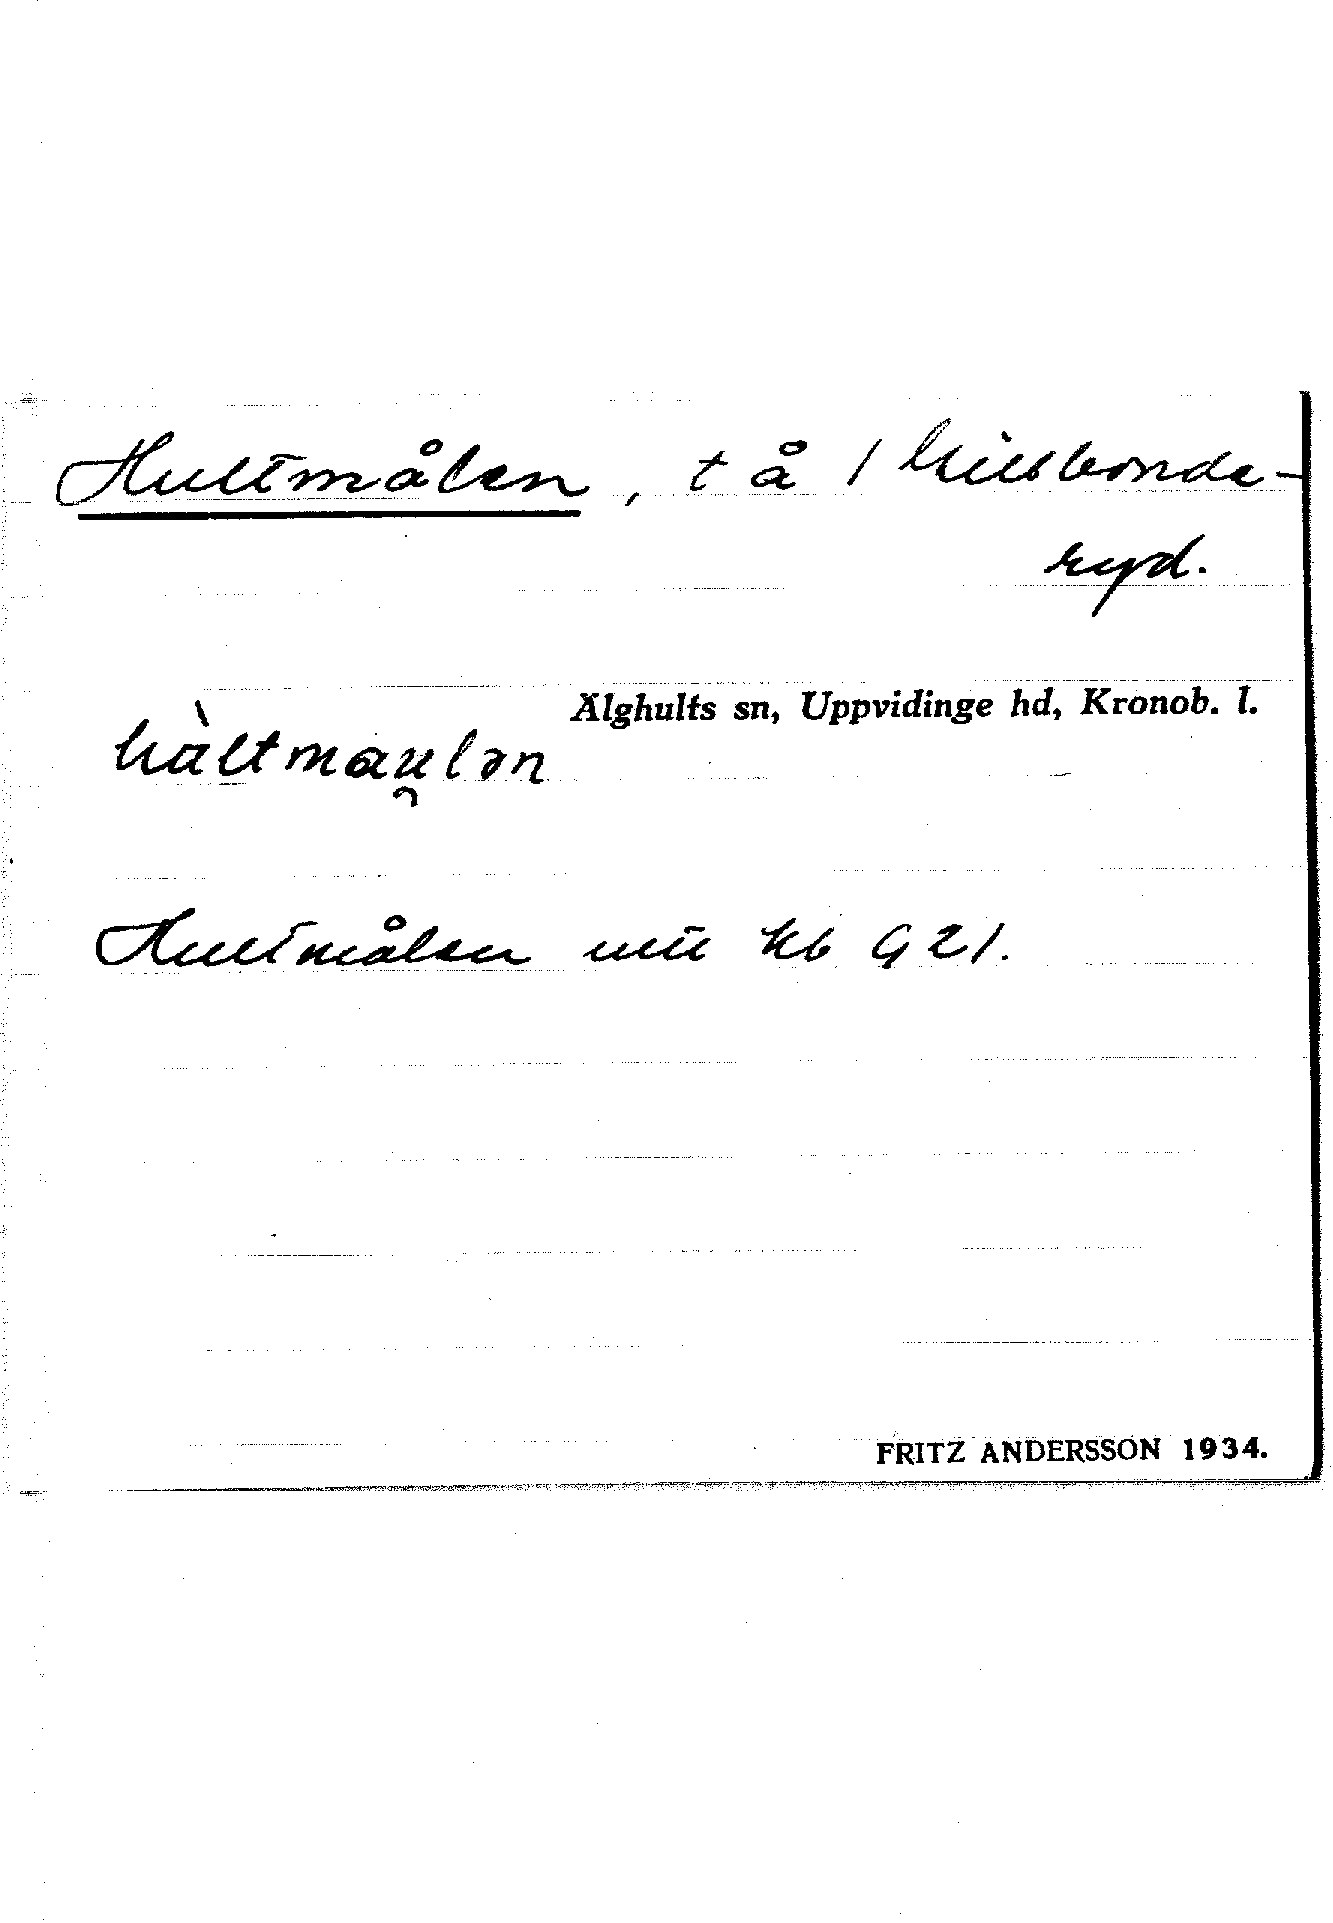 Hultmålen, t å 1 Husbonde-
ryd.
Älghults sn, Uppvidinge hd, Kronob. l.
hàltmau̯lən
Hultmålen utü kb G 21.
FRITZ ANDERSSON 1934.